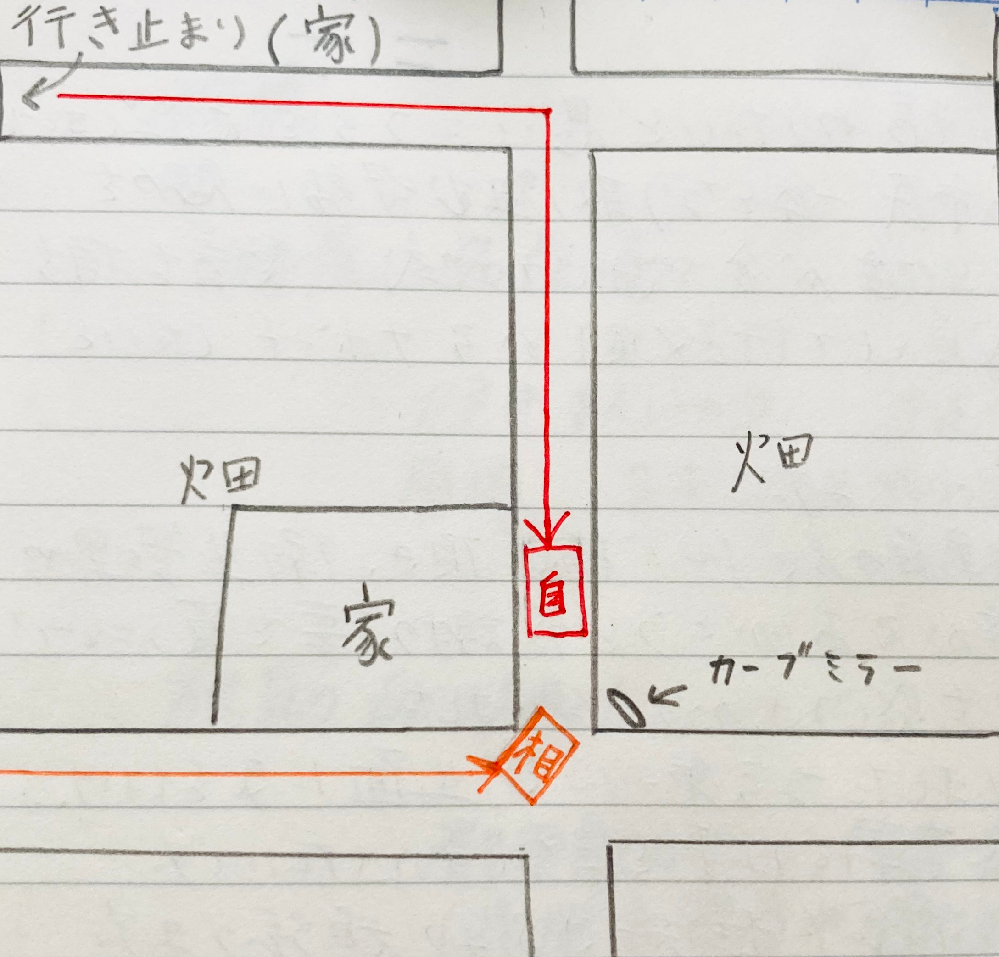 行き止まり(家)
畑
畑
家
自
カーブミラー
相